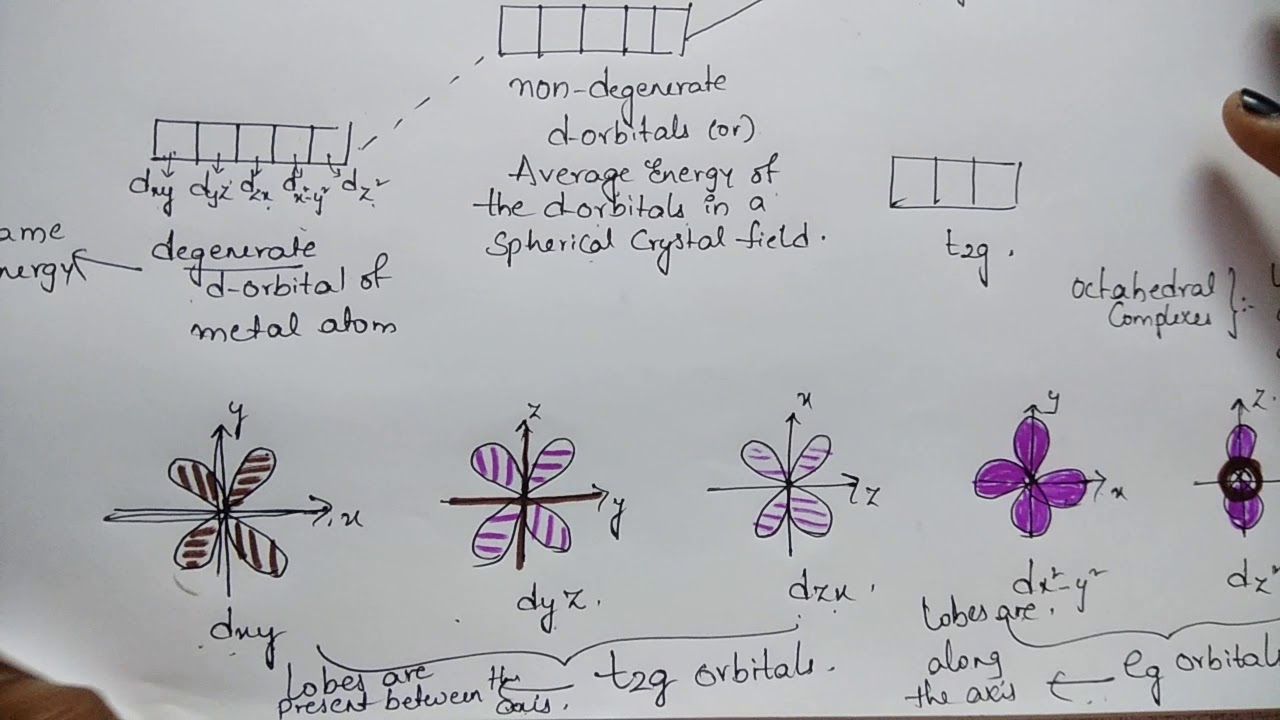 non-degenerate
d-orbitals (or)
Average Energy of
the d orbitals in a
Spherical Crystal field.
dxy dyz dzx dx²-y² dz²
degenerate
d-orbital of
metal atom
ame
nergy
t2g.
Octahedral
Complexes
y
x
dxy
z
y
dyz.
x
z
dzx.
y
x
dx²-y²
z.
dz²
Lobes are
present between the
axis.
t2g orbitals.
Lobes are.
along
the axis
eg orbitals